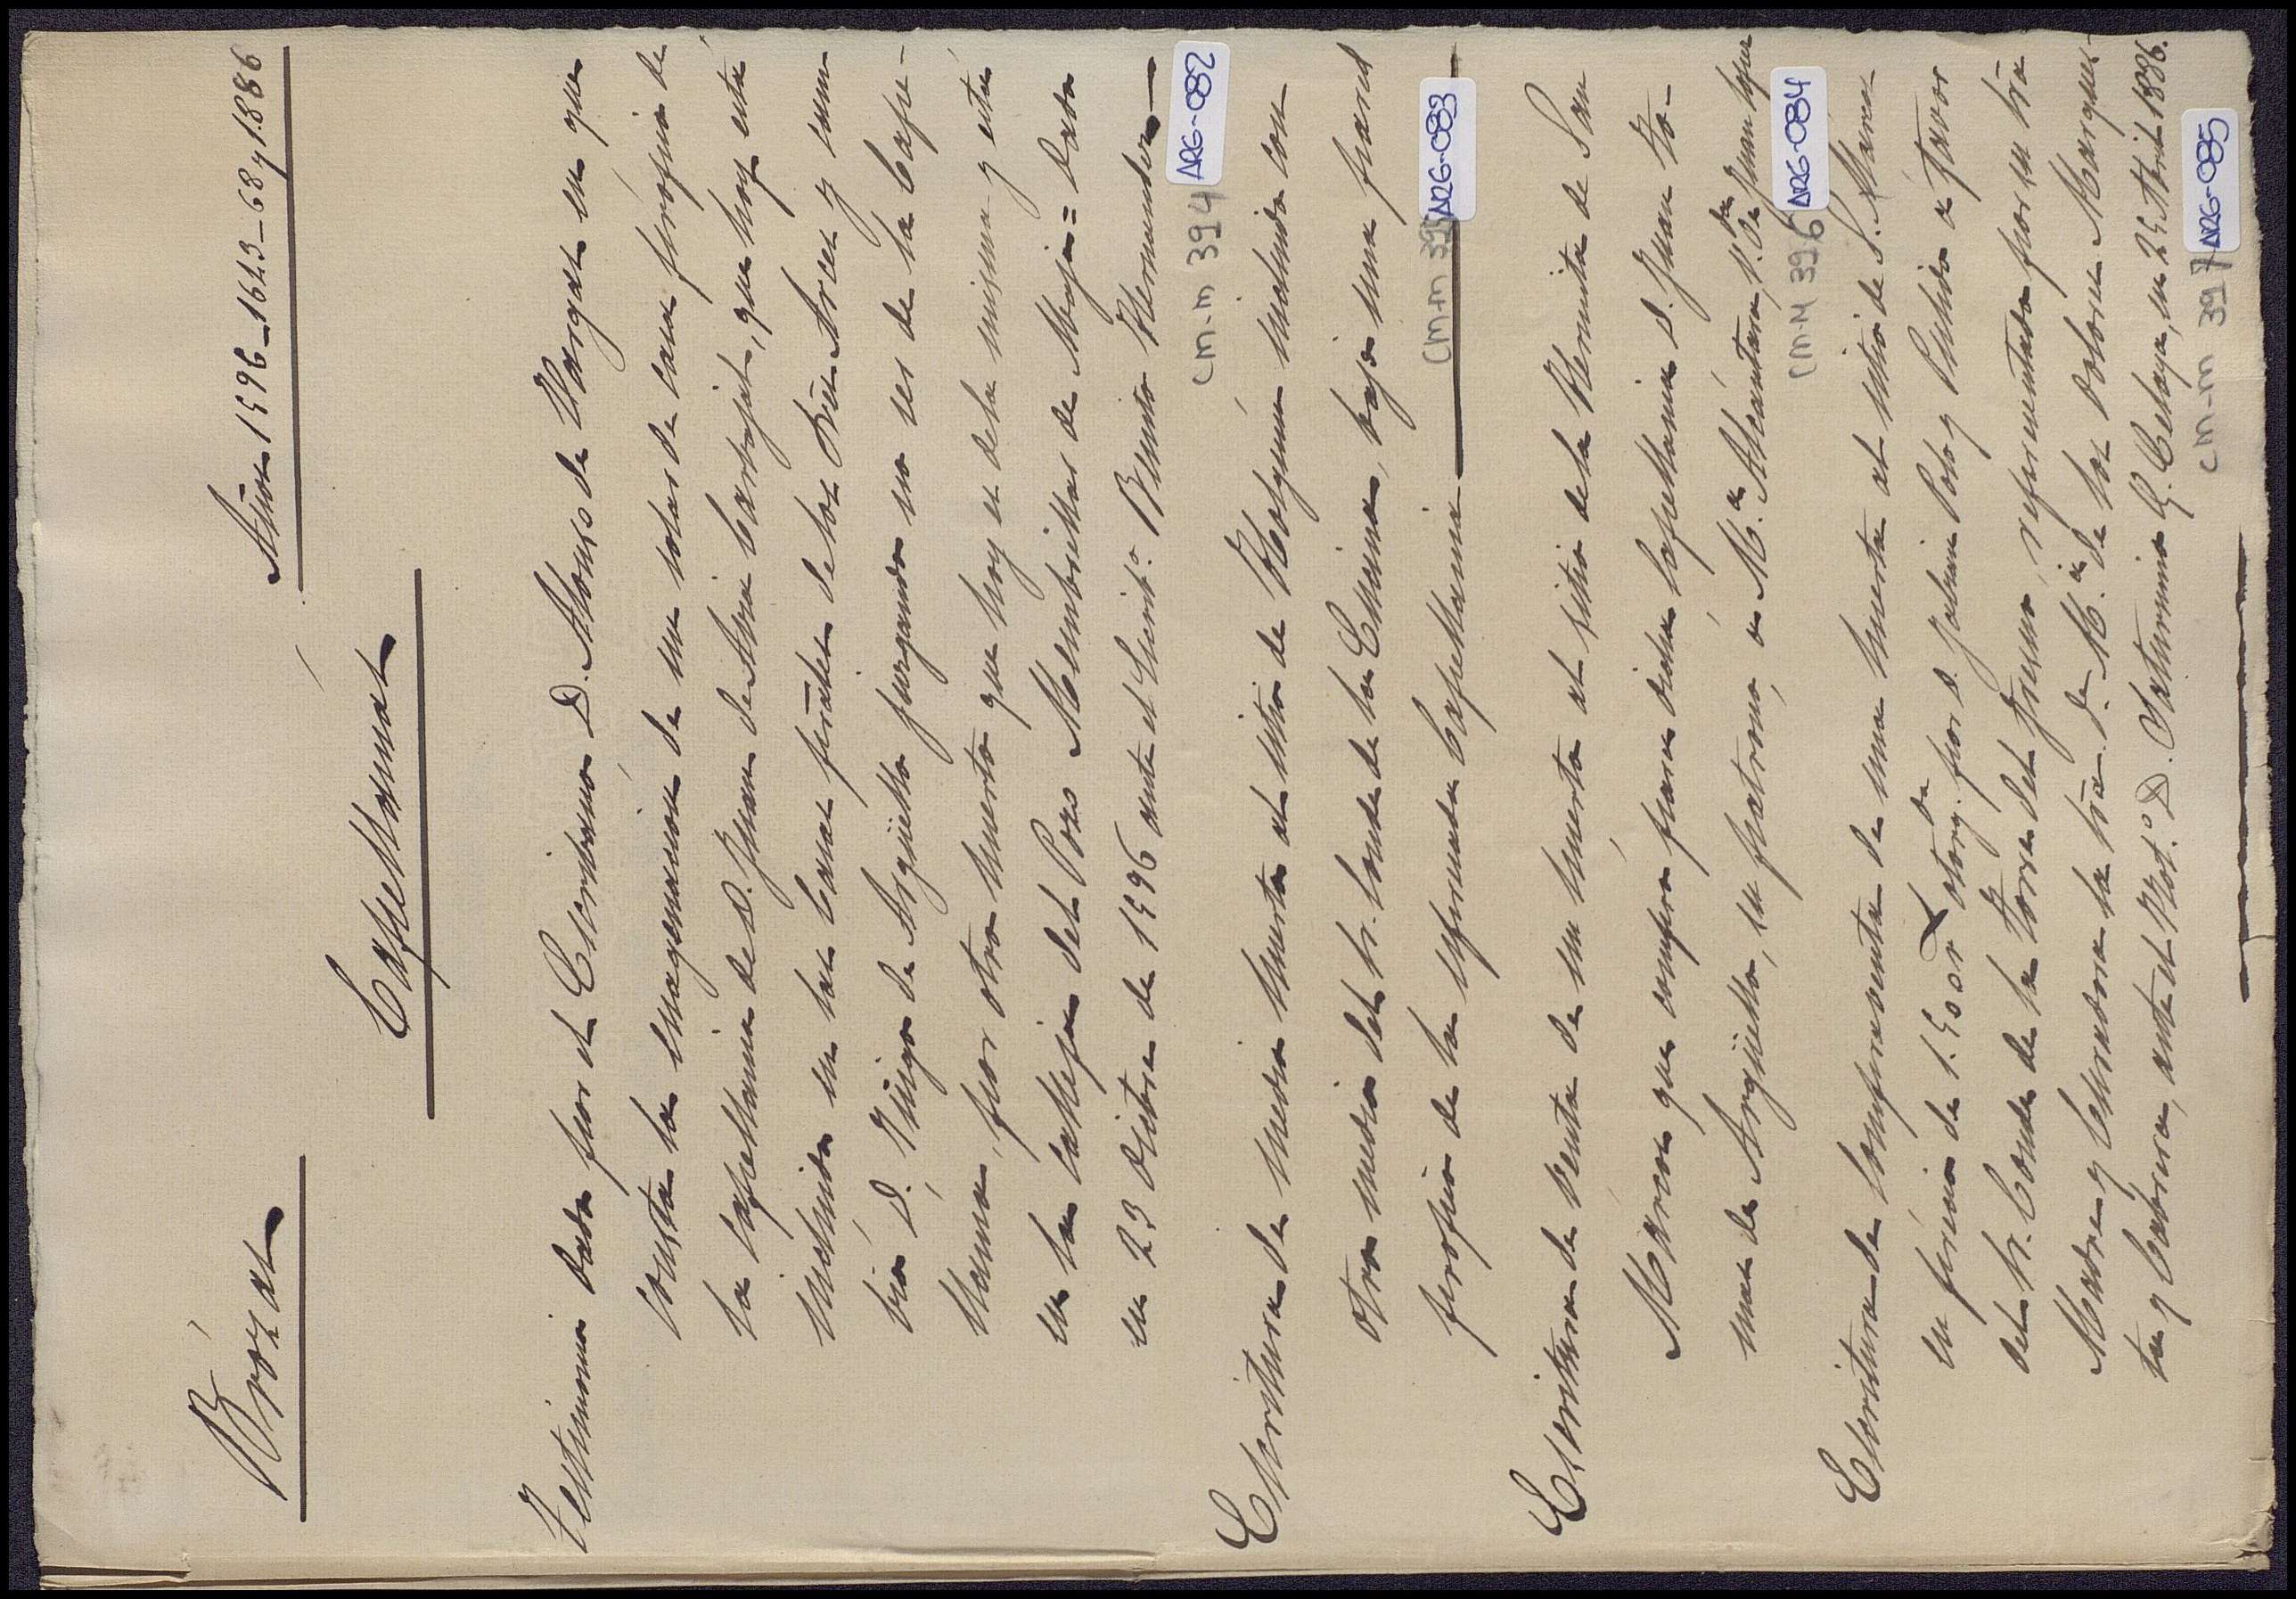 Brozas
Años 1596_1643_68 y 1886
Capellanias
Testimonio dado por el Escribano D. Alonso de Vargas en que
consta la enagenacion de un solar de casa propio de
la Capellania de D. Juan de Asia Carbajal, que hoy está
incluido en las casas pral.es de los Sres Arce y cam-
bió D. Iñigo de Argüello juzgando no ser de la Cape-
llania, por otro huerto que hoy es de la misma y está
en la calleja del Pozo Membrillar de Moja = Dado
en 23 Dicbre de 1596 ante el Escrib.o Benito Hernandez
CM-M 394 ARG-082
Escritura de medio huerto al sitio de Holguin incluido con
otro medio del Sr. Conde de la Encina, bajo una pared
propio de la referenda Capellania
CM-M 395 ARG-083
Escritura de venta de un huerto al sitio de la Hermita de San
Marcos que compró para dicha Capellania D. Juan Ro-
man de Argüello, su patrono, a M.a Alcántara, v.da de Juan Lopez
CM-M 396 ARG-084
Escritura de compraventa de una huerta al sitio de S. Marcos
en precio de 1.500 r otorg.da por D. Joaquin Polo y Pulido a favor
del Sr. Conde de la Torre del Fresno, representado por su tia
Madre y Curadora la Sra. D.a M.a de los Dolores Marques-
ta y Cabrera, ante el Not.o D. Saturnino G. Celaya, en 25 Abril 1886.
CM-M 397 ARG-085